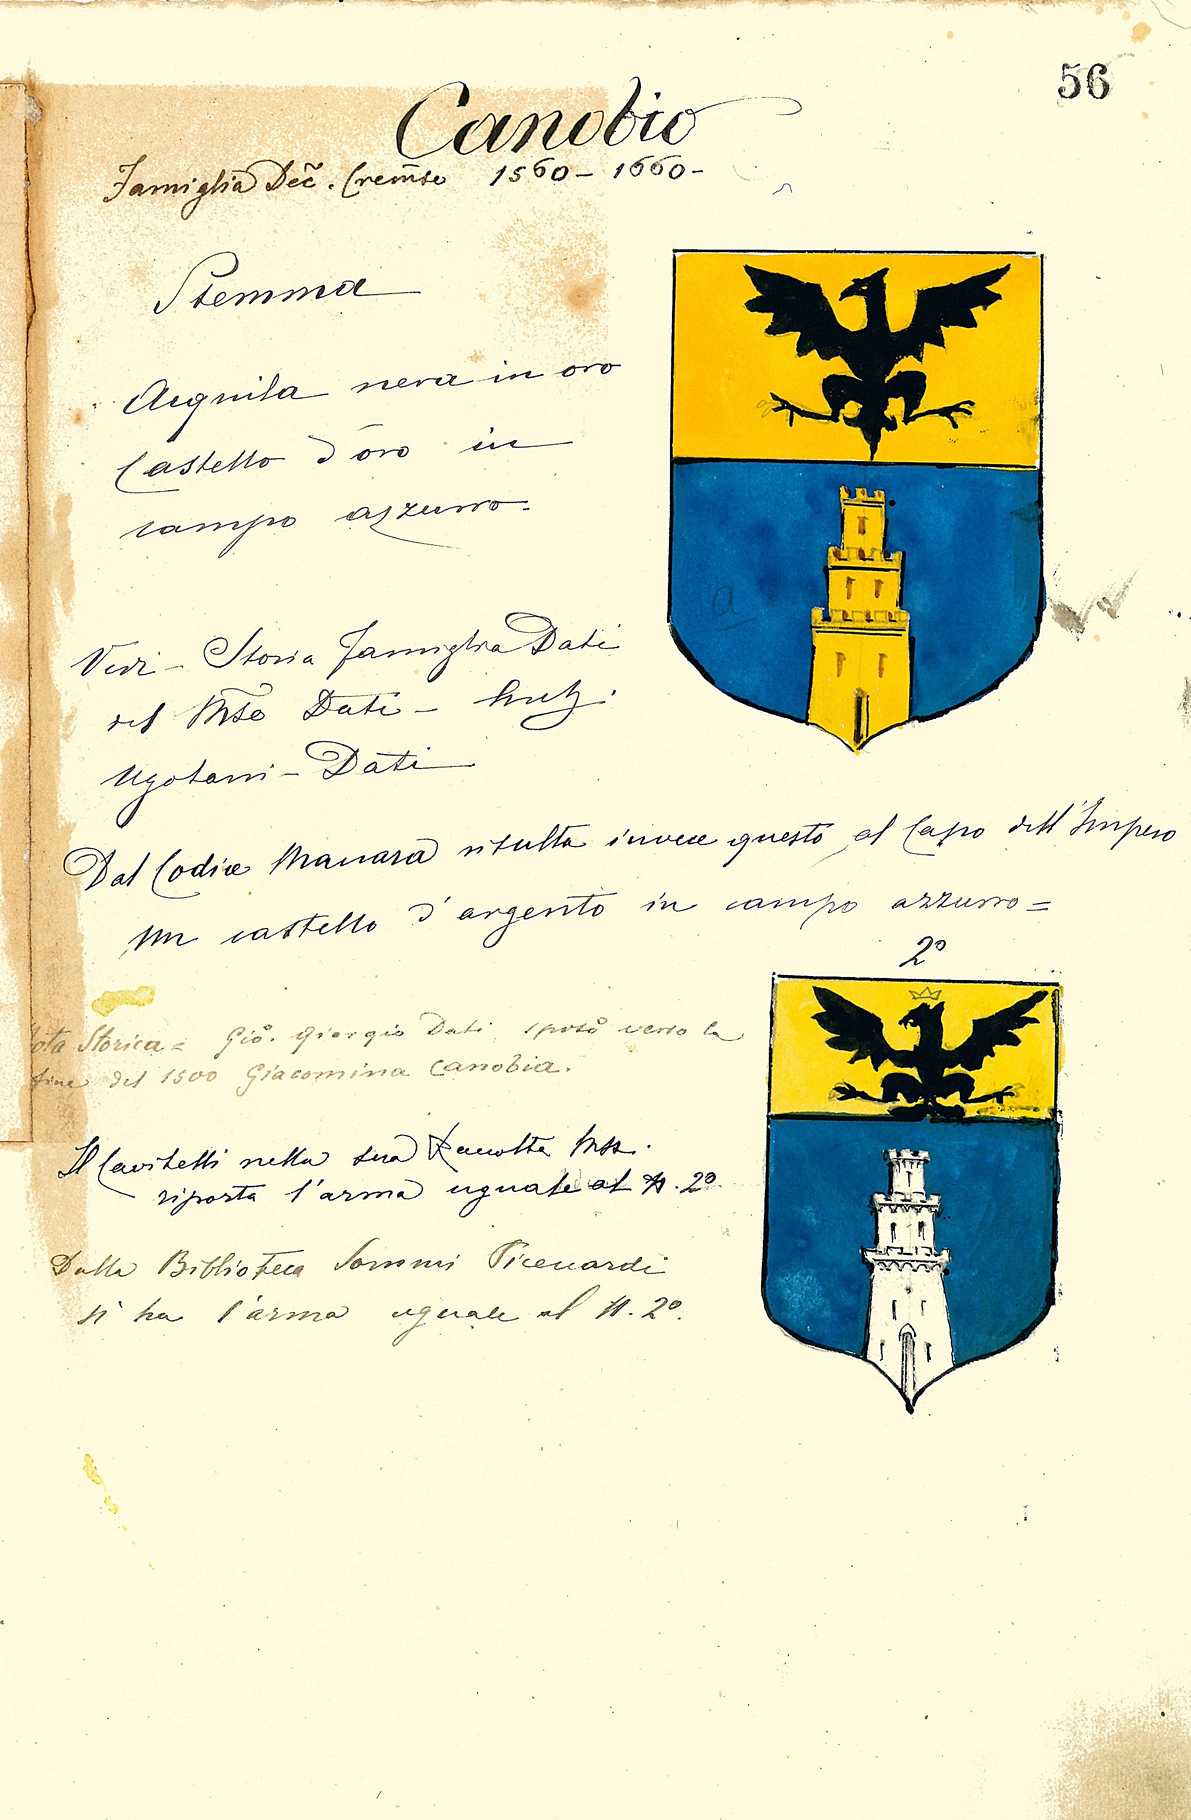 56
Canobio
Famiglia Dec̃. Crem̃se 1560 - 1660 -
Stemma
Aquila nera in oro
Castello d'oro in
campo azzurro -
Vedi - Storia Famiglia Dati
del Mse Dati -
Ugolani - Dati
Dal Codice Manara risulta invece questo al Capo dell'Impero
un castello d'argento in campo azzurro =
2º
a
Nota Storica = Giõ. Giorgio Dati sposò verso la
fine del 1500 Giacomina Canobia.
Il Cavitelli nella sua Racolta Mss.
riporta l'arma uguale al N. 2º
Dalla Biblioteca Sommi Picenardi
si ha l'arma uguale al N. 2º.